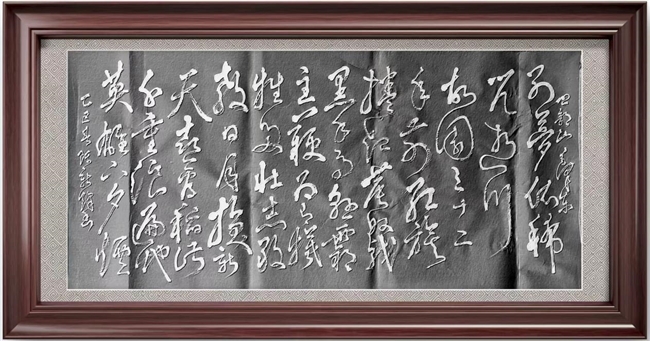 韶山 毛澤東
别夢依稀
咒逝川
故園三十二
年前红旗
捲起農奴戟
黑手高懸霸
主鞭为有犧
牲多壮志敢
教日月换新
天喜看稻菽
千重浪遍地
英雄下夕烟